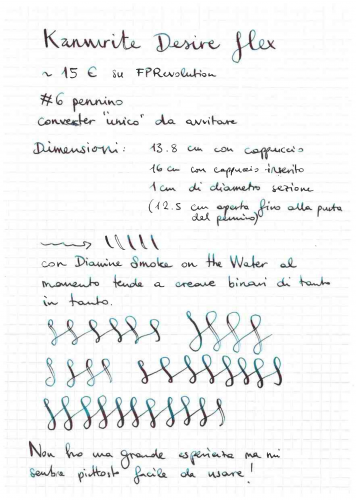 Kanwrite Desire flex
~ 15 € su FPRevolution
#6 pennino
converter "unico" da avvitare
Dimensioni: 13.8 cm con cappuccio
16 cm con cappuccio inserito
1 cm di diametro sezione
(12.5 cm aperta fino alla punta
del pennino)
con Diamine Smoke on the Water al
momento tende a creare binari di tanto
in tanto.
Non ho una grande esperienza ma mi
sembra piuttosto facile da usare!